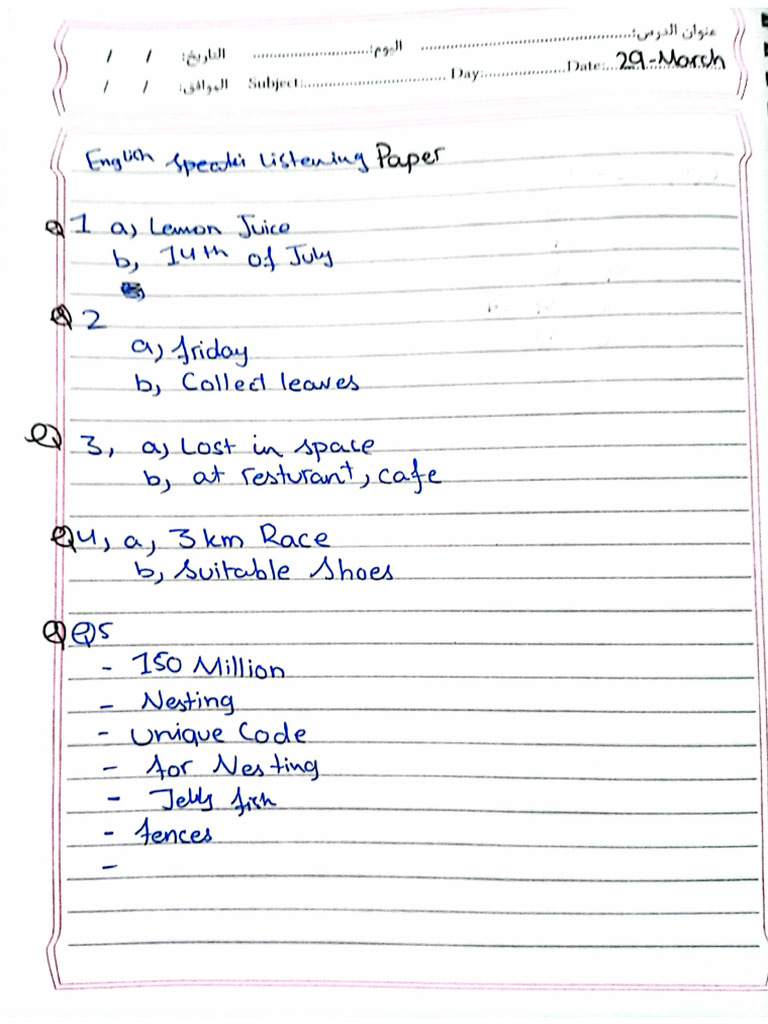 عنوان الدرس: اليوم: التاريخ: / /
Subject: Day: Date: 29-March الموافق: / /
English Speakir Listening Paper
Q1 a, Lemon Juice
b, 14th of July
Q2
a, friday
b, Collect leaves
Q3, a, Lost in space
b, at resturant, cafe
Q4, a, 3km Race
b, Suitable Shoes
Q Q5
- 150 Million
- Nesting
- Unique Code
- for Nesting
- Jelly fish
- fences
-